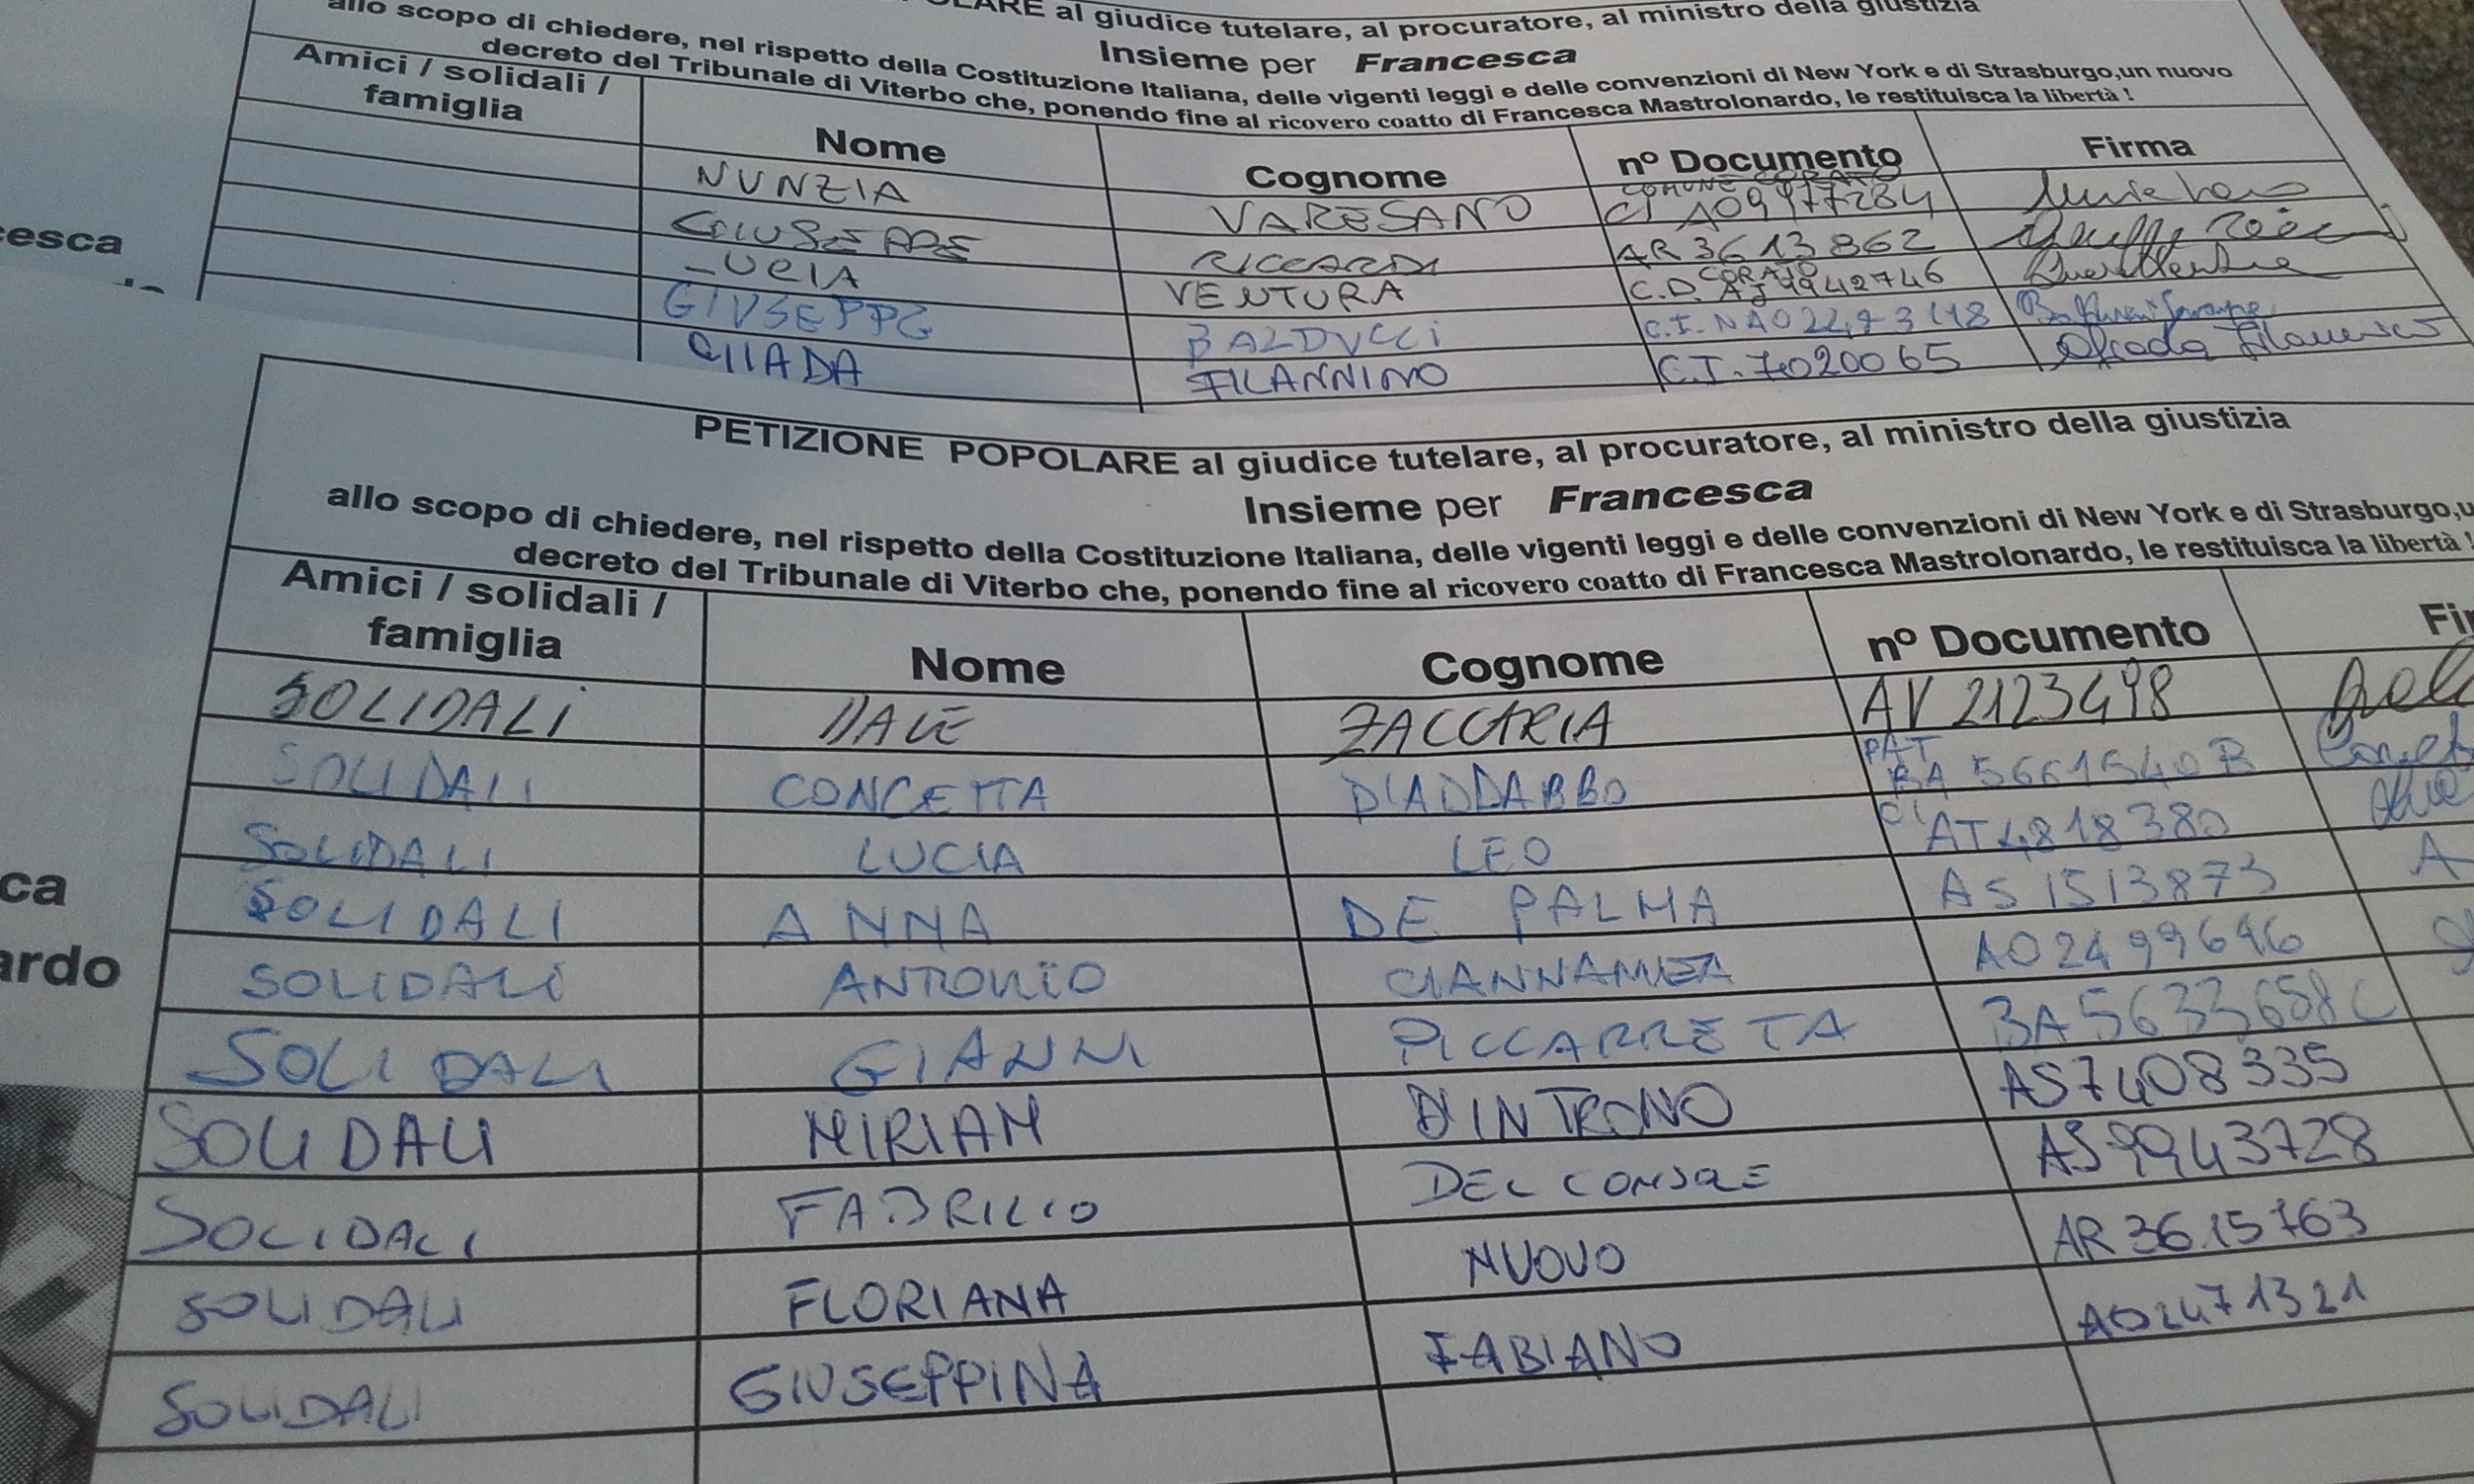 POLARE al giudice tutelare, al procuratore, al ministro della giustizia
Insieme per Francesca
allo scopo di chiedere, nel rispetto della Costituzione Italiana, delle vigenti leggi e delle convenzioni di New York e di Strasburgo,un nuovo
decreto del Tribunale di Viterbo che, ponendo fine al ricovero coatto di Francesca Mastrolonardo, le restituisca la libertà !
Amici / solidali / famiglia Nome Cognome nº Documento Firma
NUNZIA VARESANO COMUNE CORATO CI A09977284
GIUSEPPE RICCARDI AR 3613862
LUCIA VENTURA C.D. CORATO AJ 9942746
GIUSEPPE BALDUCCI C.I. NA0
FILANNINO C.I. 7020065
esca
PETIZIONE POPOLARE al giudice tutelare, al procuratore, al ministro della giustizia
Insieme per Francesca
allo scopo di chiedere, nel rispetto della Costituzione Italiana, delle vigenti leggi e delle convenzioni di New York e di Strasburgo,u
decreto del Tribunale di Viterbo che, ponendo fine al ricovero coatto di Francesca Mastrolonardo, le restituisca la libertà !
Amici / solidali / famiglia Nome Cognome nº Documento Fir
SOLIDALI DALE ZACCARIA AV 2123498
SOLIDALI CONCETTA D'ADDABBO PAT BA 5661540B
SOLIDALI LUCIA LEO CI AT4818380
SOLIDALI ANNA DE PALMA AS 1513873
SOLIDALI ANTONIO CIANNAMEA AO 2499646
SOLIDALI GIANNI PICCARRETA BA5633658C
SOLIDALI MIRIAM D'INTRONO AS7408335
SOLIDALI FABRIZIO DEL CONSOLE AS9943728
SOLIDALI FLORIANA NUOVO AR 3615763
SOLIDALI GIUSEPPINA FABIANO AO2471321
ca
ardo